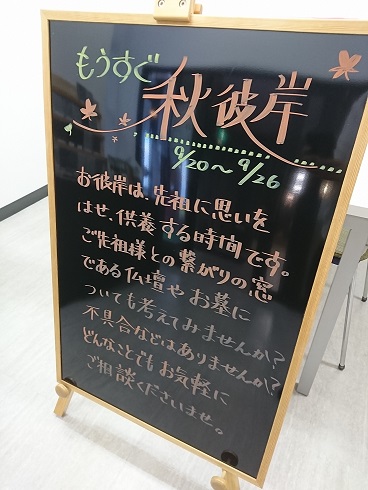 もうすぐ
秋彼岸
9/20～9/26
お彼岸は、先祖に思いを
はせ、供養する時間です。
ご先祖様との繋がりの窓
である仏壇やお墓に
ついても考えてみませんか？
不具合などはありませんか？
どんなことでもお気軽に
ご相談くださいませ。